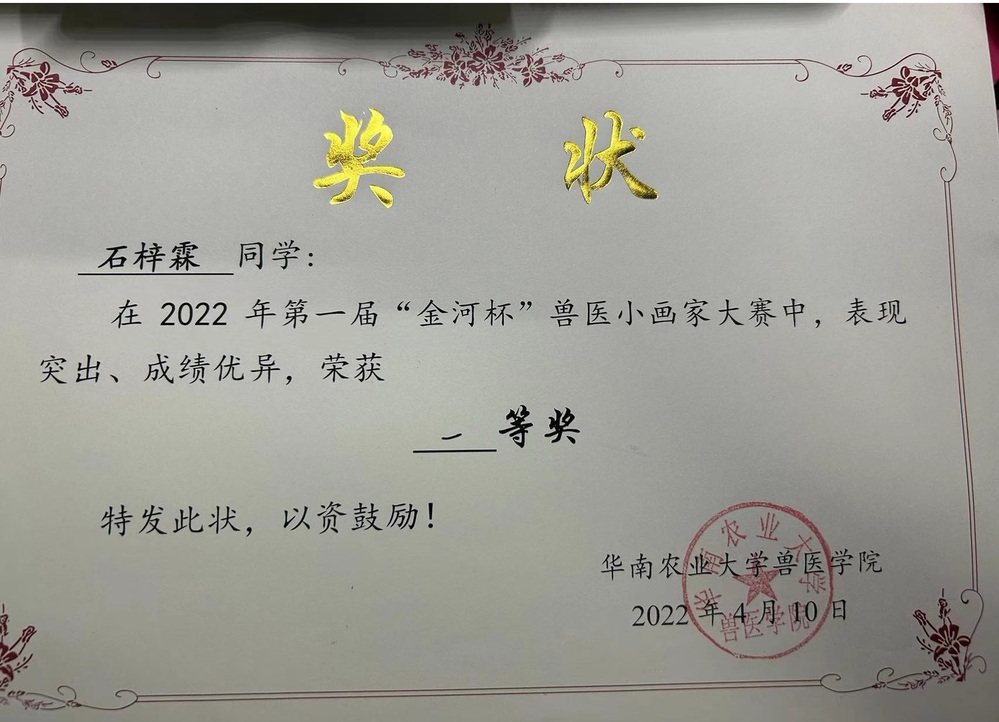 奖 状
石梓霖 同学：
在 2022 年第一届“金河杯”兽医小画家大赛中，表现
突出、成绩优异，荣获
一 等奖
特发此状，以资鼓励！
华南农业大学兽医学院
2022 年 4 月 10 日
华南农业大学
兽医学院